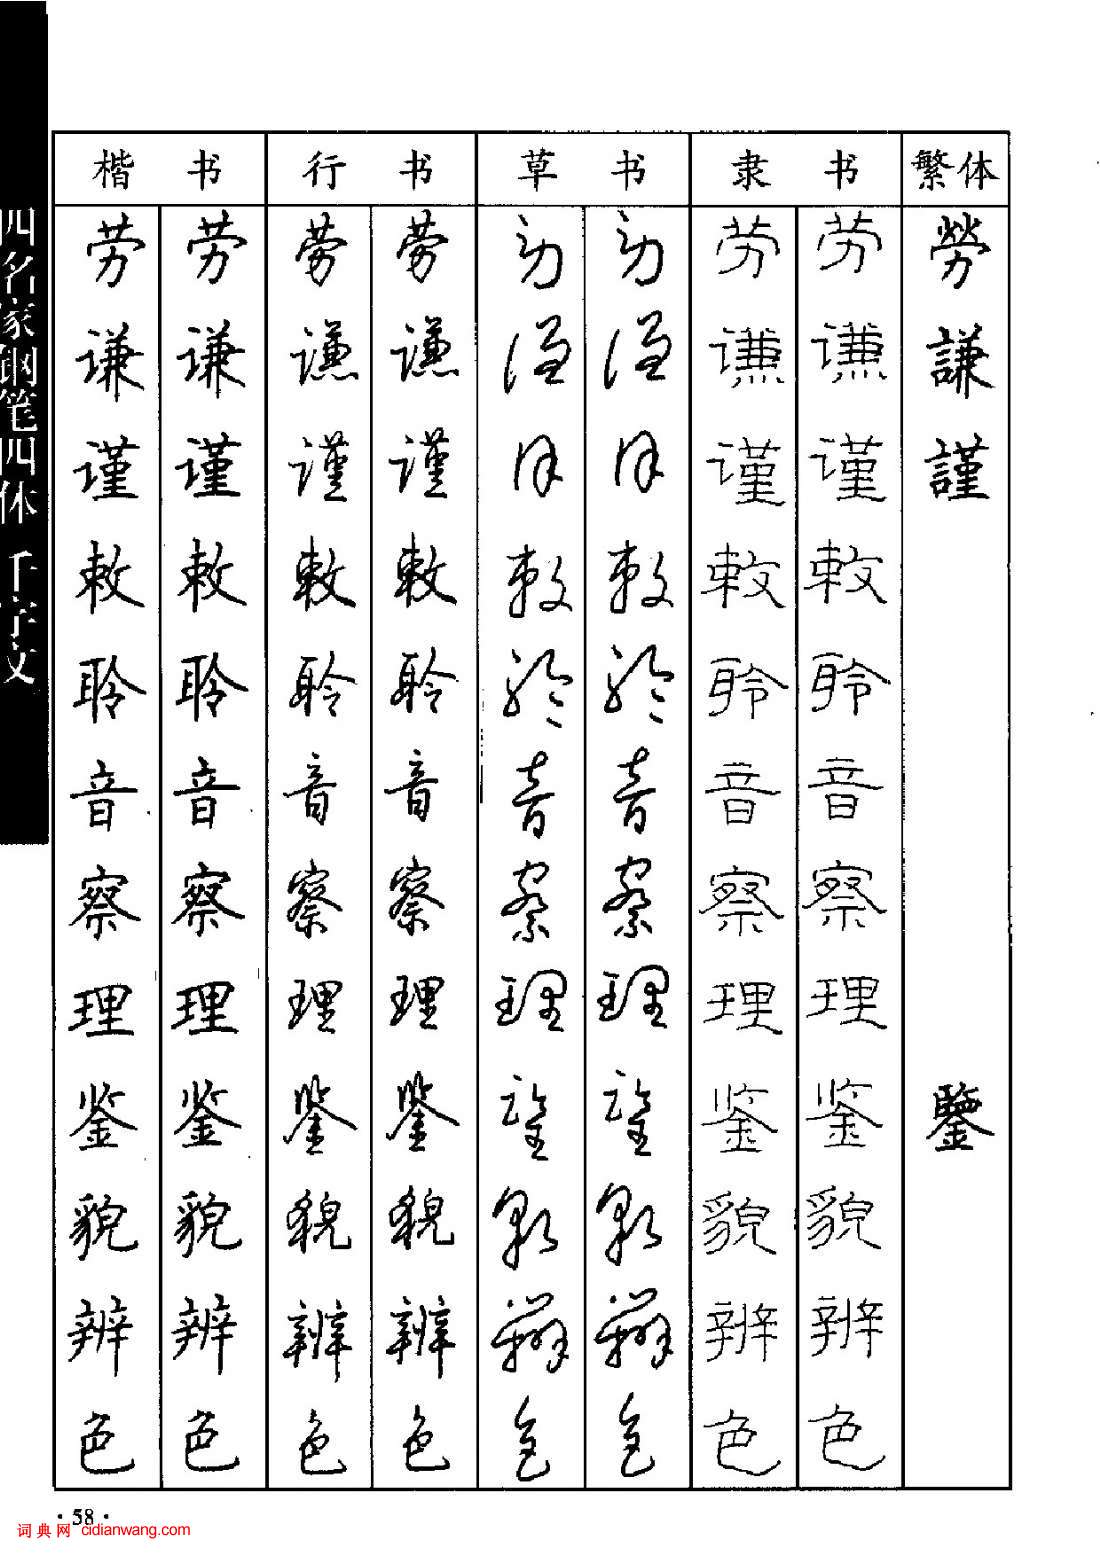 四名家钢笔四体 千字文
楷 书 行 书 草 书 隶 书 繁体
劳 劳 劳 劳 劳 劳 劳 劳 勞
谦 谦 谦 谦 谦 谦 谦 谦 謙
谨 谨 谨 谨 谨 谨 谨 谨 謹
敕 敕 敕 敕 敕 敕 敕 敕
聆 聆 聆 聆 聆 聆 聆 聆
音 音 音 音 音 音 音 音
察 察 察 察 察 察 察 察
理 理 理 理 理 理 理 理
鉴 鉴 鉴 鉴 鉴 鉴 鉴 鉴 鑒
貌 貌 貌 貌 貌 貌 貌 貌
辨 辨 辨 辨 辨 辨 辨 辨
色 色 色 色 色 色 色 色
·58·
词典网 cidianwang.com